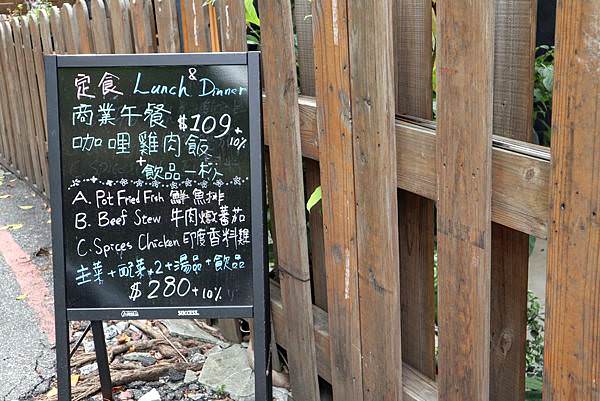 定食 Lunch & Dinner
商業午餐 $109+10%
咖哩雞肉飯
+
飲品一杯
A. Pot Fried Fish 鮮魚排
B. Beef Stew 牛肉燉蕃茄
C. Spices Chicken 印度香料雞
主菜+配菜×2+湯品+飲品
$280+10%
SUCCESS.